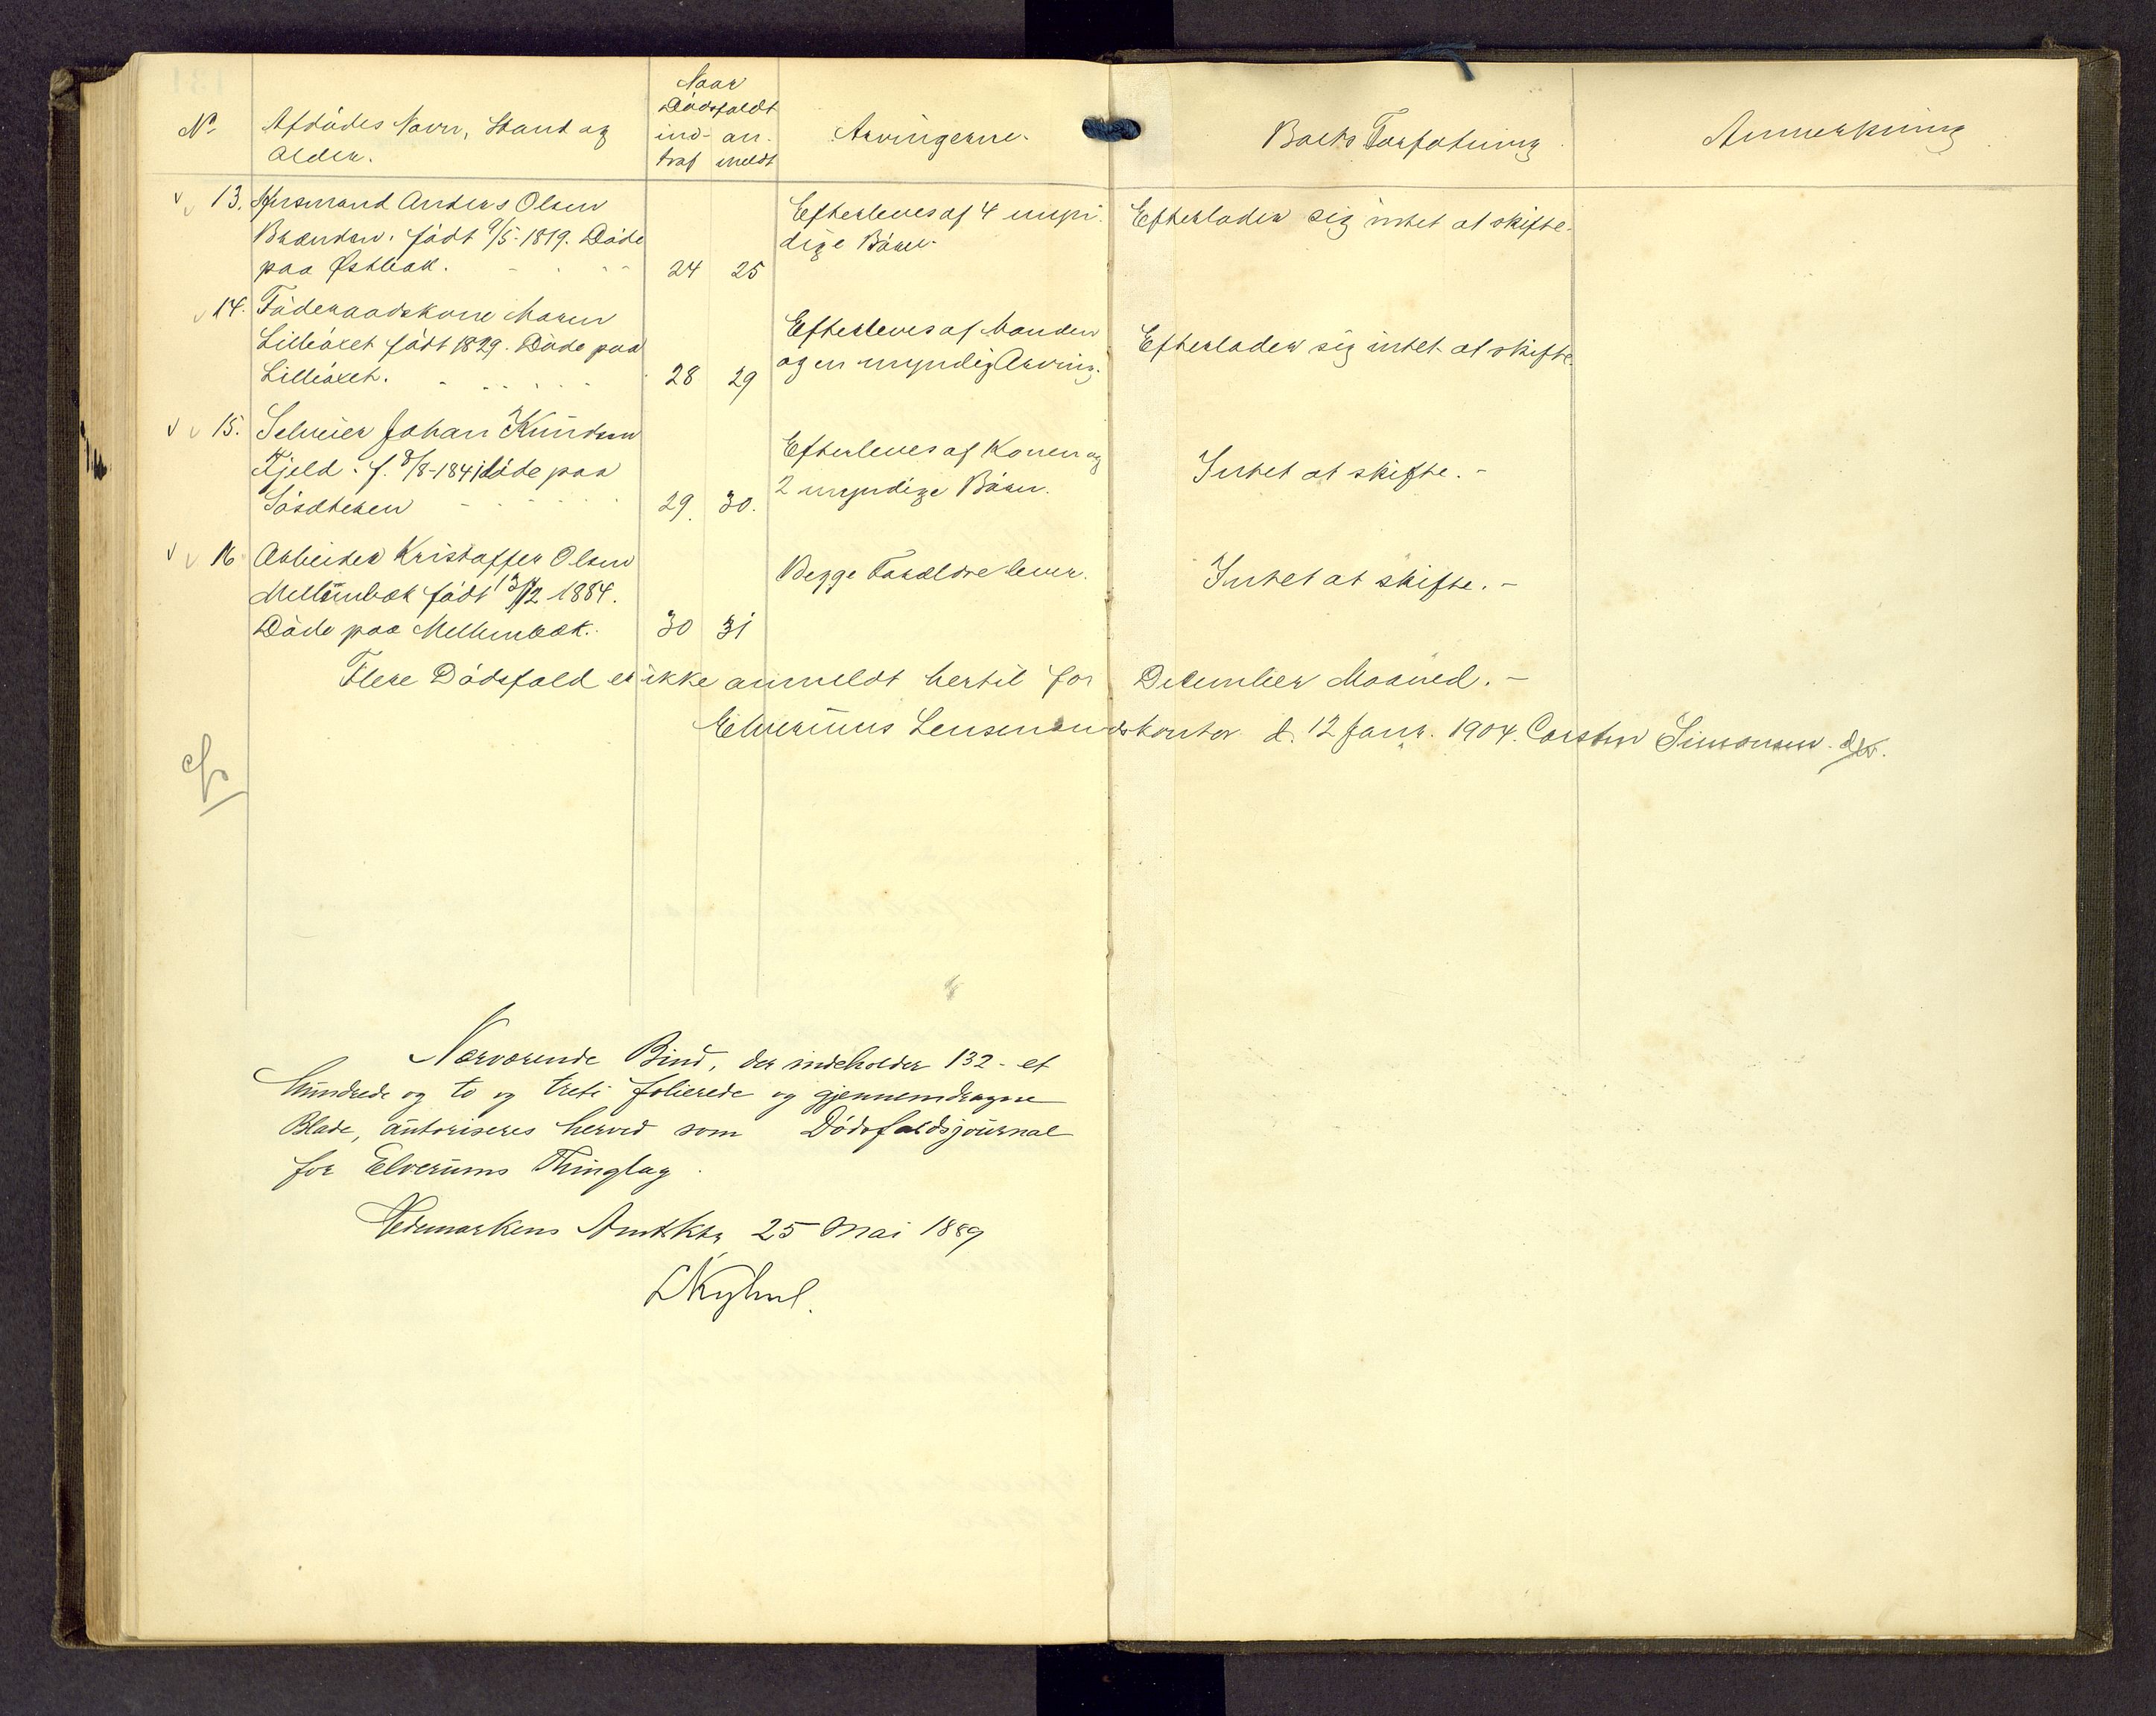 No
Afdødes Navn, Stand og
Alder.
Naar
Dødsfaldt
ind- an-
traf meldt
Arvingerne.
Boets Forfatning
Anmerkning
13. Husmand Anders Olsen
Brænden. født 9/5-1819. Døde
paa Østbak. 24 25
Efterleves af 4 myn-
dige Børn.
Efterlader sig intet at skifte.
14. Føderaadskone Maren
Lilleåset født 1829. Døde paa
Lilleåset. 28 29
Efterleves af Manden
og en myndig Arving.
Efterlader sig intet at skifte.
15. Selveier Johan Knudsen
Kjeld. f. 8/8-1841 døde paa
29. 30.
Efterleves af Konen og
2 myndige Børn.
Intet at skifte. -
16 Arbeider Kristoffer Olsen
Mellembak født 13/12 1884.
Døde paa Mellembak. 30 31
Begge Forældre lever.
Intet at skifte. -
Flere Dødsfald er ikke anmeldt hertil for December Maaned. -
Elverums Lensmandskontor d. 12 Janr. 1904. Carsten Simonsen.
Nærværende Bind, der indeholder 132 - et
hundrede og to og treti folierede og gjennemdragne
Blade, autoriseres herved som Dødsfaldsjournal
for Elverums Thinglag.
Hedemarkens Amtkhr 25 Mai 1889